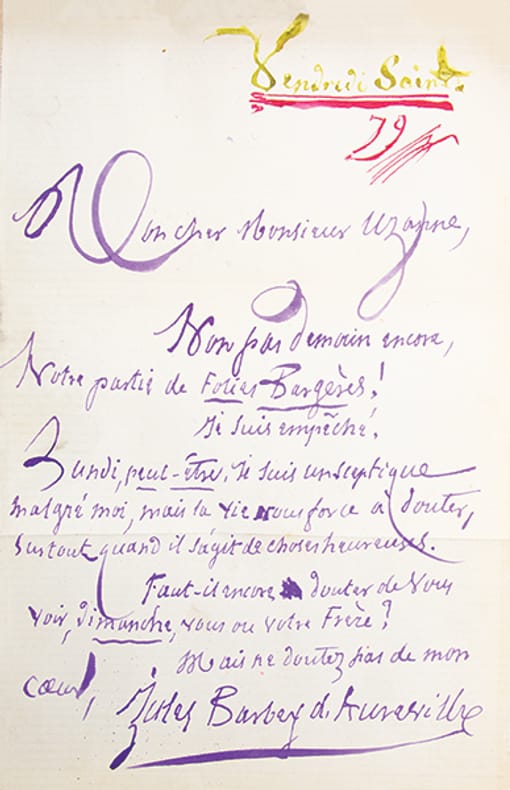 Vendredi Saint
79
Mon cher Monsieur Uzanne,
Non pas demain encore,
Notre partie de Folies Bargères!
Je suis empêché.
Lundi, peut-être. Je suis un sceptique
malgré moi, mais la vie nous force à douter,
surtout quand il s'agit de choses heureuses.
Faut-il encore douter de vous
voir, dimanche, vous ou votre Frère?
Mais ne doutez pas de mon
cœur,
Jules Barbey d'Aurevilly